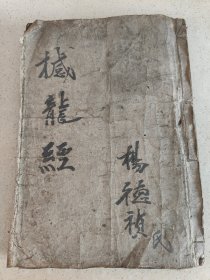 撼龍經
楊德禎氏